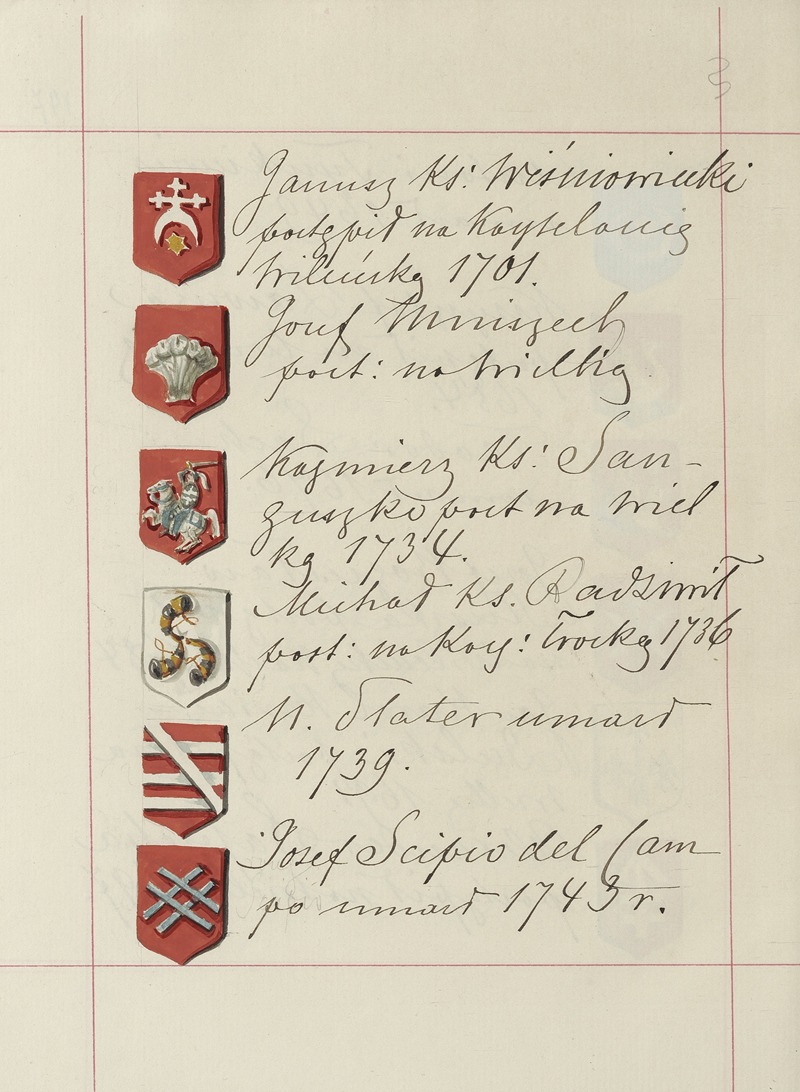 Janusz Ks: Wiśniowiecki
postąpił na Kasztelanię
Wileńską 1701.
Józef Mniszech
post: na Wielką
Kazimierz Ks: San-
guszko post na Wiel
ką 1734.
Michał Ks. Radziwił
post: na Kasz: Trocką 1736
N. Plater umarł
1739.
Josef Scipio del Cam
po umarł 1743 r.